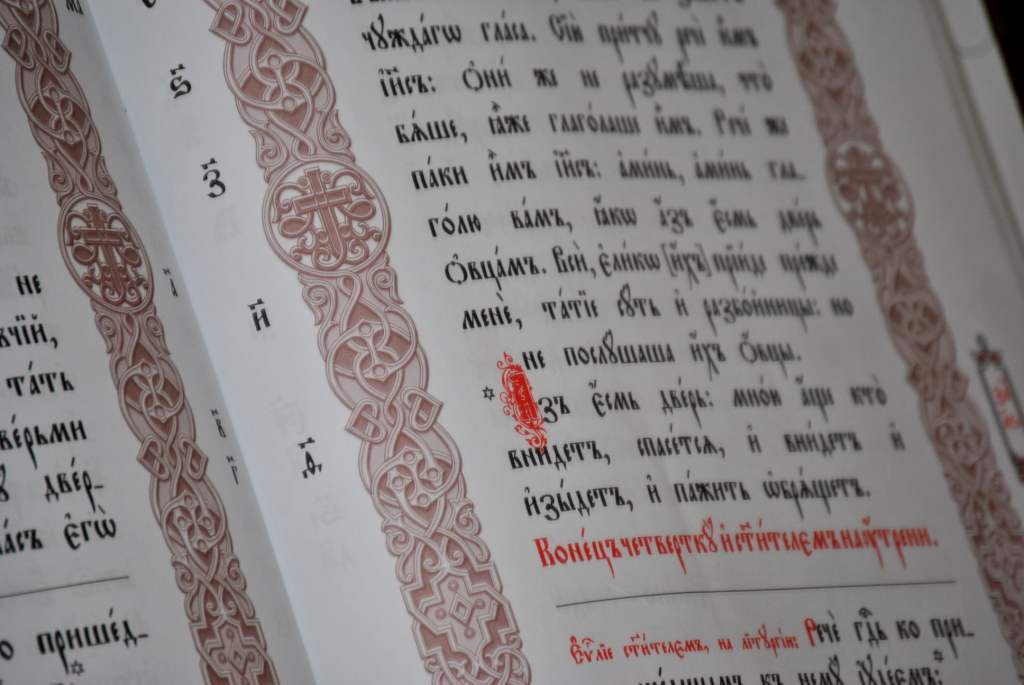 не
вчі́й,
та́ть
ве́рьми
две́р-
гла́съ є҆гѡ̀
прише́д-
ѕ҃
з҃
и҃
д҃
чꙋжда́гѡ гла́са. Сїѝ при́тчꙋ речѐ и҆̀мъ
і҆и҃съ: Ѻ҆ни́ же не разꙋмѣ́ша, что̀
бѧ́ше, ꙗ҆̀же глаго́лаше и҆̀мъ. Речѐ же
па́ки и҆̀мъ і҆и҃съ: а҆ми́нь, а҆ми́нь гла-
го́лю ва́мъ, ꙗ҆́кѡ а҆́зъ є҆́смь две́рь
Ѻ҆вца́мъ. Всѝ, є҆ли́кѡ [и҆́хъ] прїи́де пре́жде
менє̀, та́тїе сꙋ́ть и҆ разбо́йницы: но
не послꙋ́шаша и҆́хъ Ѻ҆́вцы.
А҆́зъ є҆́смь две́рь: мно́ю а҆́ще кто̀
вни́детъ, спасе́тсѧ, и҆ вни́детъ и҆
и҆зы́детъ, и҆ па́жить ѡ҆брѧ́щетъ.
Коне́цъ четверткꙋ̀ и҆ ст҃и́телємъ на ᲂу҆́трени.
Є҆ѵⷢ҇лїе ст҃и́телємъ, на лїтꙋргі́и: Речѐ гдⷭ҇ь ко при-
ше́дшымъ къ немꙋ̀ і҆ꙋде́ємъ: